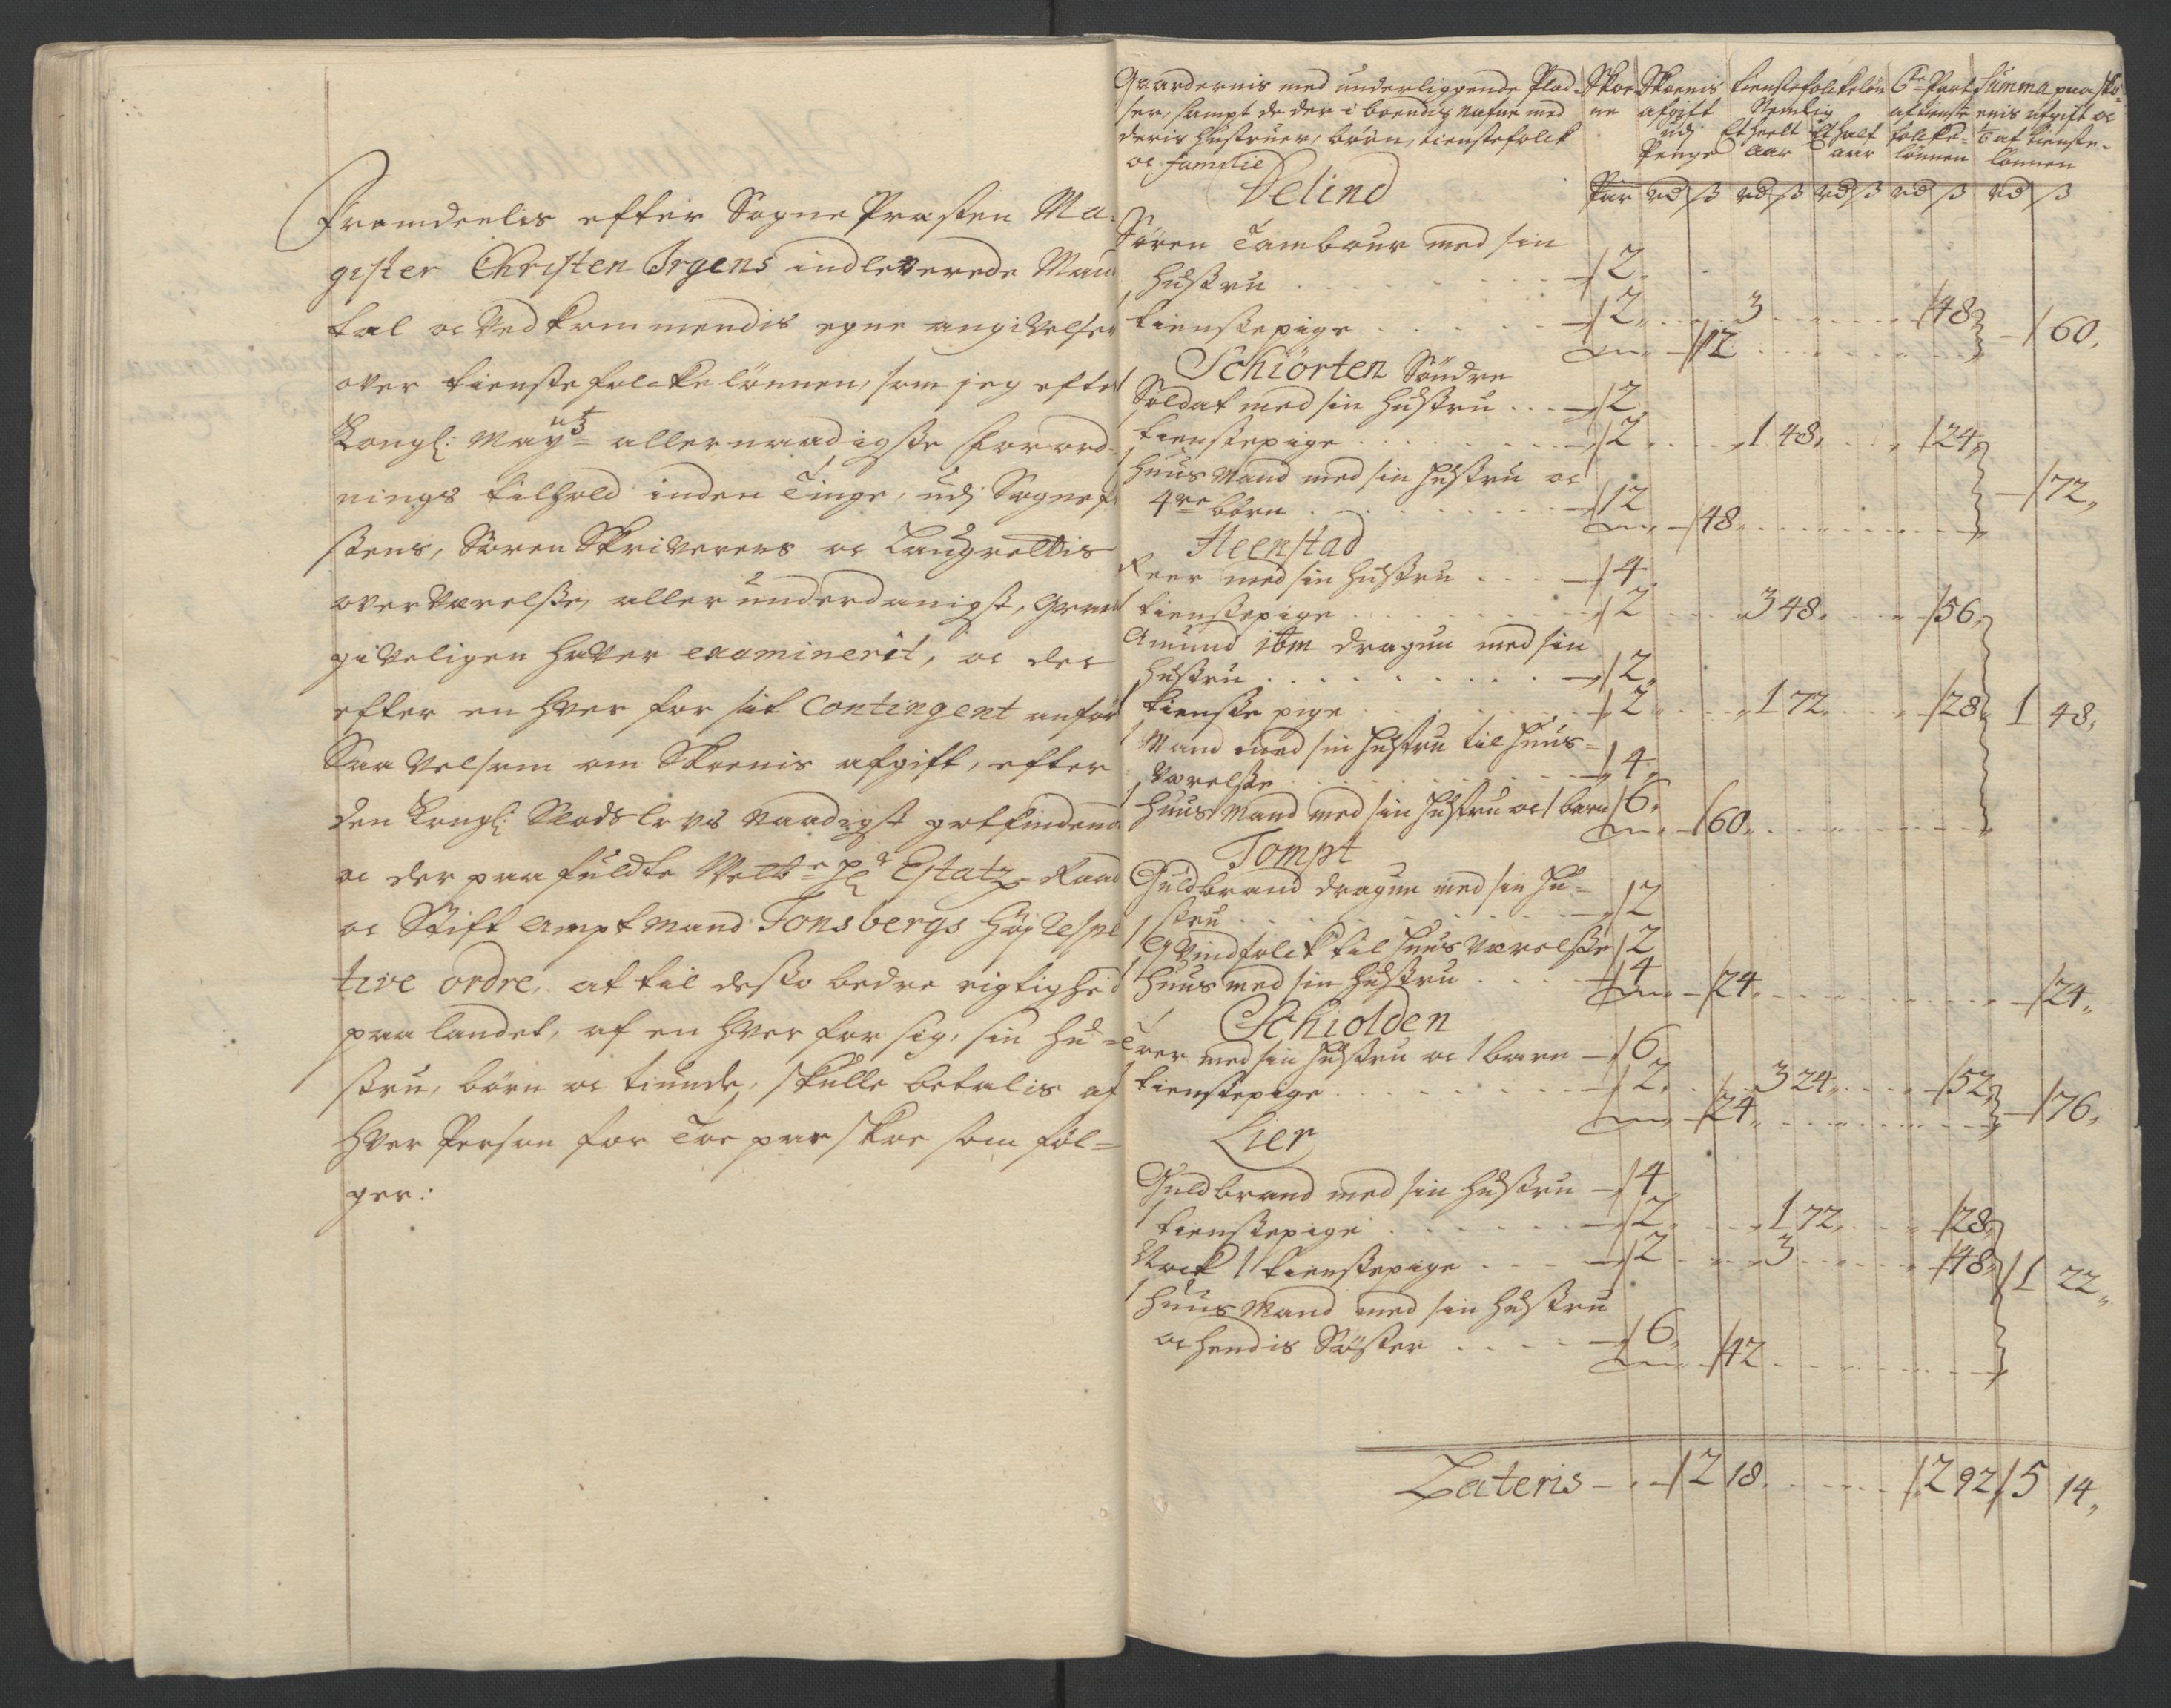 Fremdeelis efter Sogne Præsten Ma-
gister Christen Irgens indleverede Man
tal oc Vedkommendis egne angivelser
over tienstefolckelönnen, som jeg efter
Kongl: May: tz allernaadigste forord-
nings tilhold inden Tinge, udj Sognepr
stens, Sören Skriverens oc Laugrettis
overværelsse, allerunderdanigst,
giveligen haver examinerit, oc der
efter en hver for sit Contingent anför
Saavelsom om Skoenis afgift, efter
den Kongl: Slodslovs naadigst gotfindend
oc der paa fuldte Velb:ne Hr Etatz Raad
oc Stift Amptmand Tonsbergs Höj Respec
tive ordre, at til desto bedre rigtighed
paa landet, af en hver for sig, sin hu-
stru, börn oc tiunde, skulle betalis af
hver Person for Toe par skoe som föl-
ger:
Gaardernis med underliggende Plad-
ser, sampt de der i boendis nafne med
deris hustruer, börn, tienstefolck
oc familie
Skoe
ne
Par
Skoenis
afgift
udj
Penge
rd ß
tienstefolckelön
Nemlig
Et heelt
aar
Et halt
aar
rd ß rd ß
6te Part
af tienste
folcke-
lönnen
rd ß
Summa paa sko-
enis afgift oc
1/6 af tienste-
lönnen
rd ß
Velind
Sören Tambour med sin
hustru . . . 2
1 tienstepige . . . 2 . . 3 . . . 48
12 . . . 60
Schiörten Söndre
Soldat med sin hustru . . . 2
1 tienstepige . . . 2 . . 1 48 . . 24
1 huus Mand med sin hustru oc
4re börn . . . 12
48 . . . 72
Steenstad
Peer med sin hustru . . . 4
1 tienstepige . . . 2 . . 3 48 . . 56
Amund ibm dragun med sin
hustru . . . 2
1 tienste pige . . . 2 . . 1 72 . . 28 1 48
1 Mand med sin hustru til huus-
værelsse . . . 4
1 huus Mand med sin hustru oc 1 barn 6
60 . . .
Tompt
Guldbrand dragun med sin hu-
stru . . . 2
1 Qvindfolck til huus værelsse 2
1 huus med sin hustru . . . 4
24 . . . 24
Schiolden
Toer med sin hustru oc 1 barn – 6
1 tienstepige . . . 2 . . 3 24 . . 52
24 . . . 76
Lier
Guldbrand med sin hustru – 4
1 tienstepige . . . 2 . . 1 72 . . 28
Nock 1 tienstepige . . . 2 . . 3 . . 48 1 22
1 huus Mand med sin hustru
oc hendis Söster . . . 6
42 . . .
Lateris – . . 2 18 . . . 2 92 5 14